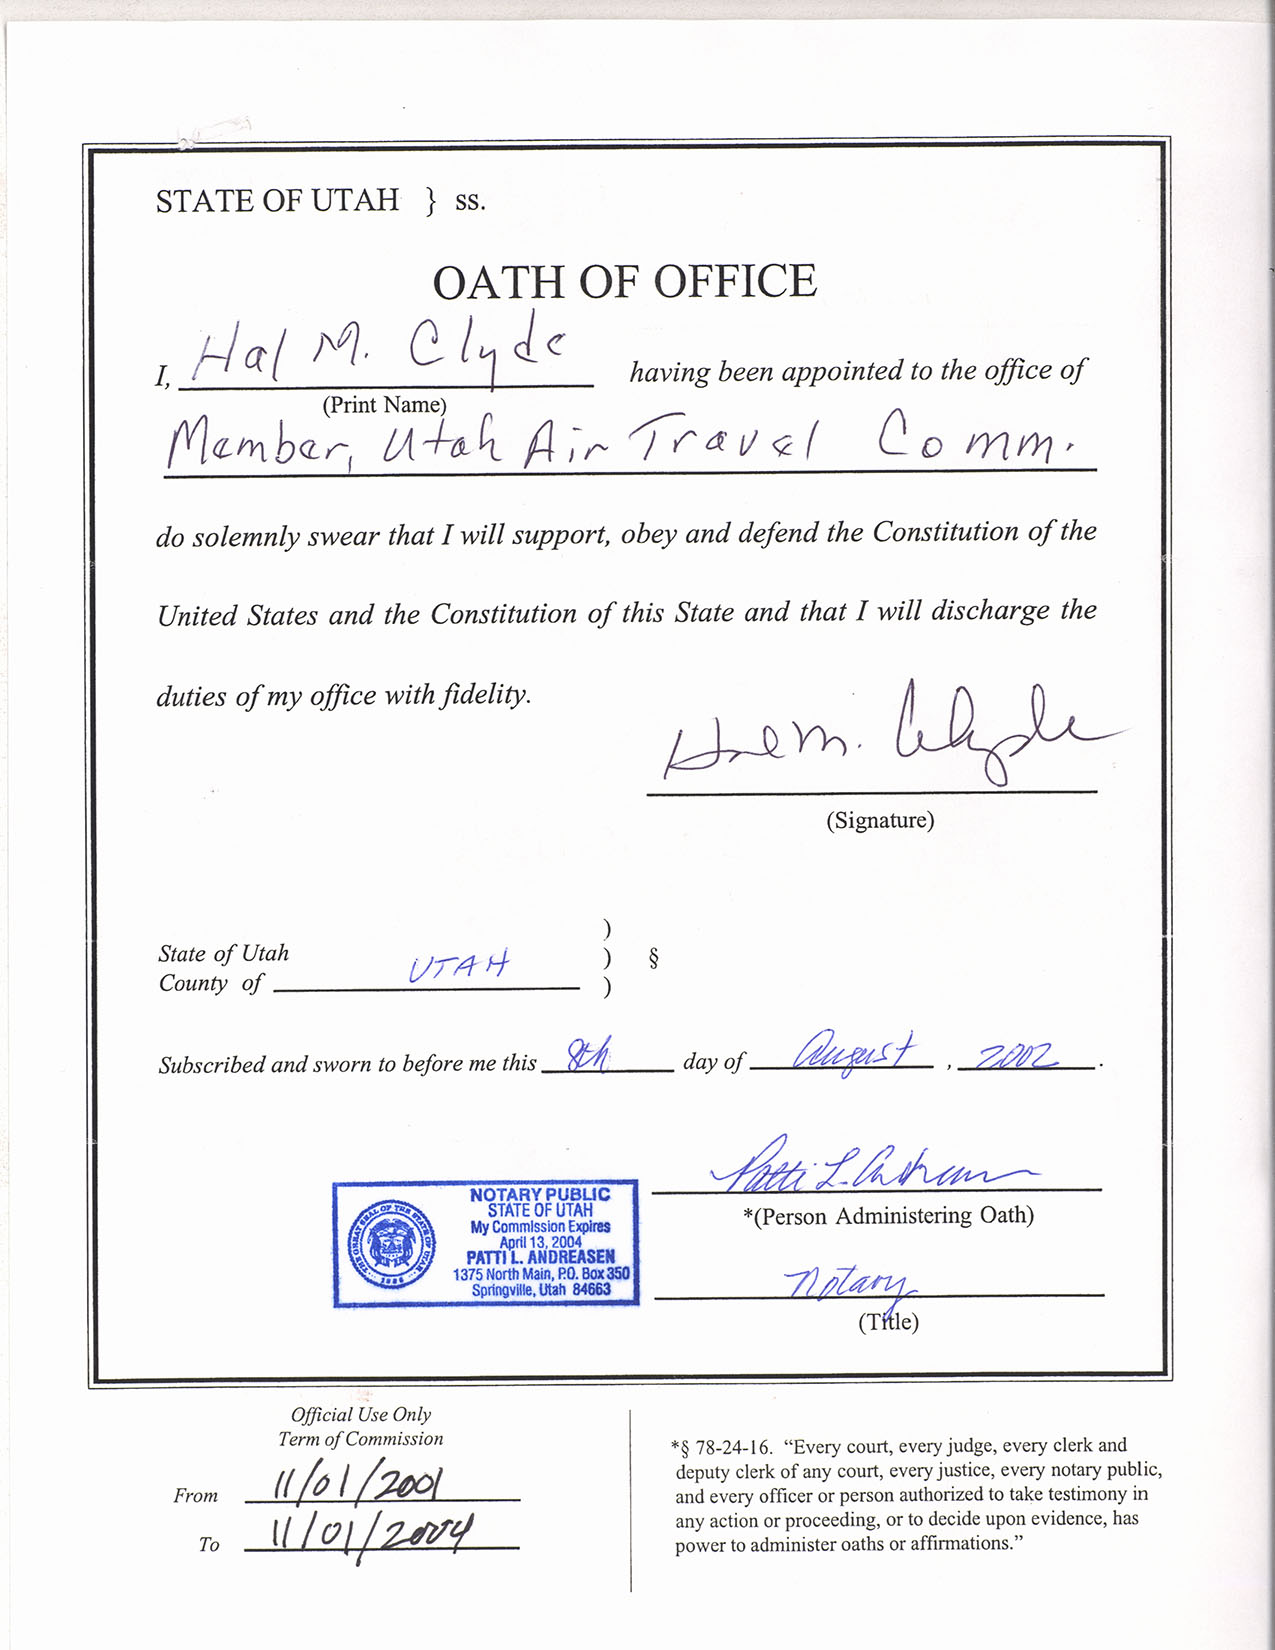 STATE OF UTAH } ss.
OATH OF OFFICE
I, Hal M. Clyde having been appointed to the office of
(Print Name)
Member, Utah Air Travel Comm.
do solemnly swear that I will support, obey and defend the Constitution of the
United States and the Constitution of this State and that I will discharge the
duties of my office with fidelity.
Hal M. Clyde
(Signature)
)
State of Utah ) §
County of UTAH )
Subscribed and sworn to before me this 8th day of August, 2002.
Patti L. Andreasen
*(Person Administering Oath)
NOTARY PUBLIC
STATE OF UTAH
My Commission Expires
April 13, 2004
PATTI L. ANDREASEN
1375 North Main, P.O. Box 350
Springville, Utah 84663
THE GREAT SEAL OF THE STATE OF UTAH
1896
Notary
(Title)
Official Use Only
Term of Commission
From 11/01/2001
To 11/01/2004
*§ 78-24-16. “Every court, every judge, every clerk and
deputy clerk of any court, every justice, every notary public,
and every officer or person authorized to take testimony in
any action or proceeding, or to decide upon evidence, has
power to administer oaths or affirmations.”